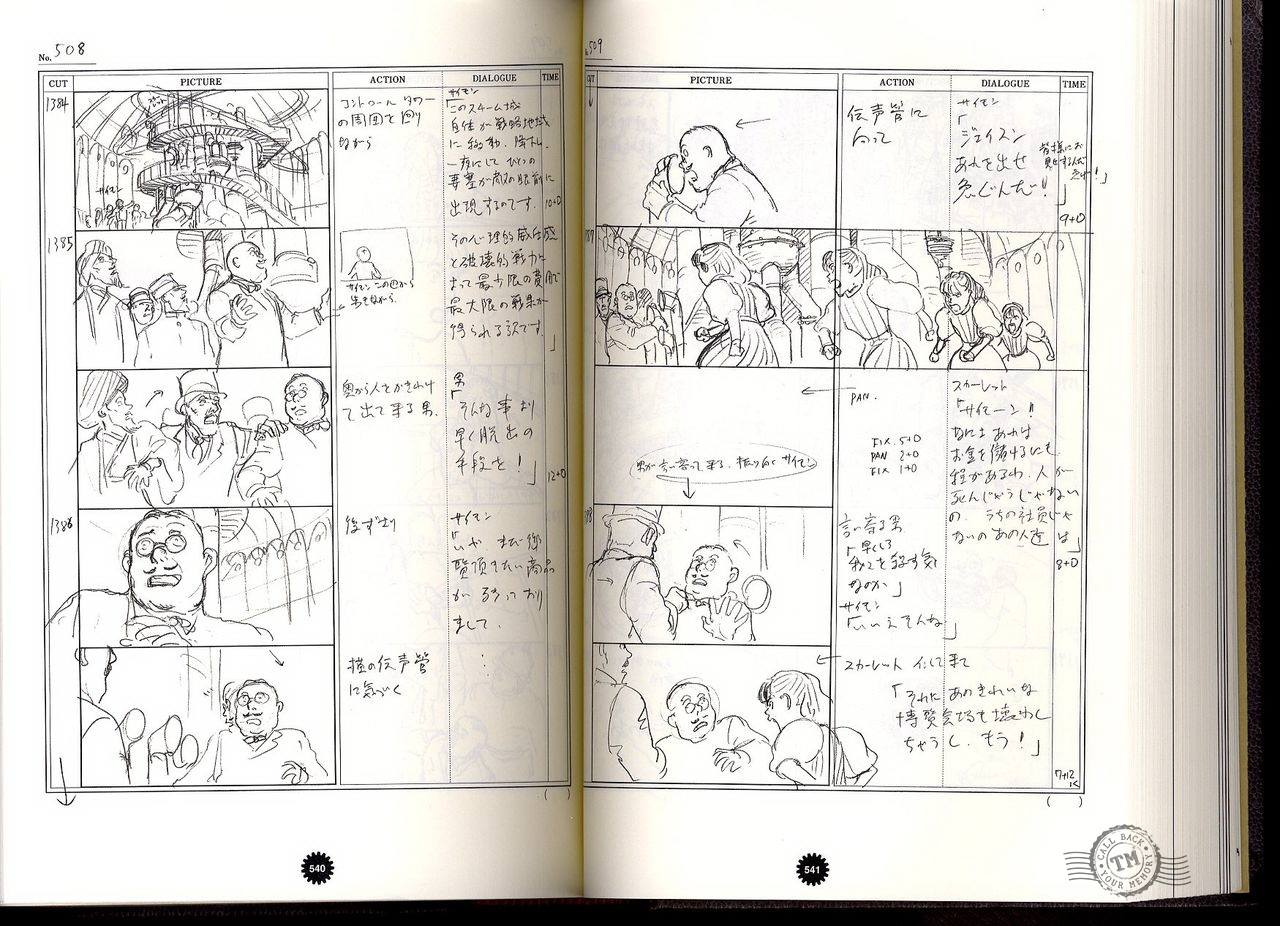 No. 508
CUT PICTURE ACTION DIALOGUE TIME
1384
サイモン
コントロールタワー
の周囲を回り
ながら
サイモン
「このスチーム城
自体が戦略地域
に移動、降下し、
一夜にして ひとつの
要塞が敵の眼前に
出現するのです。
10+0
1385
サイモン この中から
その心理的威圧感
と破壊的戦力に
よって最少限の費用で
最大限の戦果が
得られる訳です。
」
奥から人をかきわけ
て出て来る男。
男
「そんな事より
早く脱出の
手段を!
」
12+0
1386
後ずさり
サイモン
「いや まだ御
覧頂きたい商品
が 残っており
まして。
横の伝声管
に気づく
( )
540
509
CUT PICTURE ACTION DIALOGUE TIME
伝声管に
向って
サイモン
「
ジェイスン
あれを出せ
急ぐんだ!!
皆様にお
見せするんだ
急げ!
」
9+0
PAN.
FIX 5+0
PAN 2+0
FIX 1+0
スカーレット
「サイモーン!!
なによ あれは
お金を儲けるにも
程があるわ、人が
死んじゃうじゃない
の。 うちの社員じゃ
ないの あの人達は
」
8+0
男が言い寄って来る、振り向くサイモン
言い寄る男
「早くしろ
我々を殺す気
なのか」
サイモン
「いいえそんな」
スカーレット INして来て
「それに あのきれいな
博覧会場も壊わし
ちゃうし、もう!」
7+12
( )
541
CALL BACK
TM
YOUR MEMORY